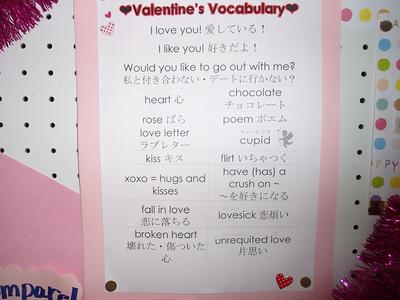 Valentine's Vocabulary
I love you! 愛している！
I like you! 好きだよ！
Would you like to go out with me?
私と付き合わない・デートに行かない？
heart 心
chocolate
チョコレート
rose ばら
poem ポエム
love letter
ラブレター
cupid
kiss キス
flirt いちゃつく
xoxo = hugs and
kisses
have (has) a
crush on ~
～を好きになる
fall in love
恋に落ちる
lovesick 恋煩い
broken heart
壊れた・傷ついた
心
unrequited love
片思い
mpare!
PPY